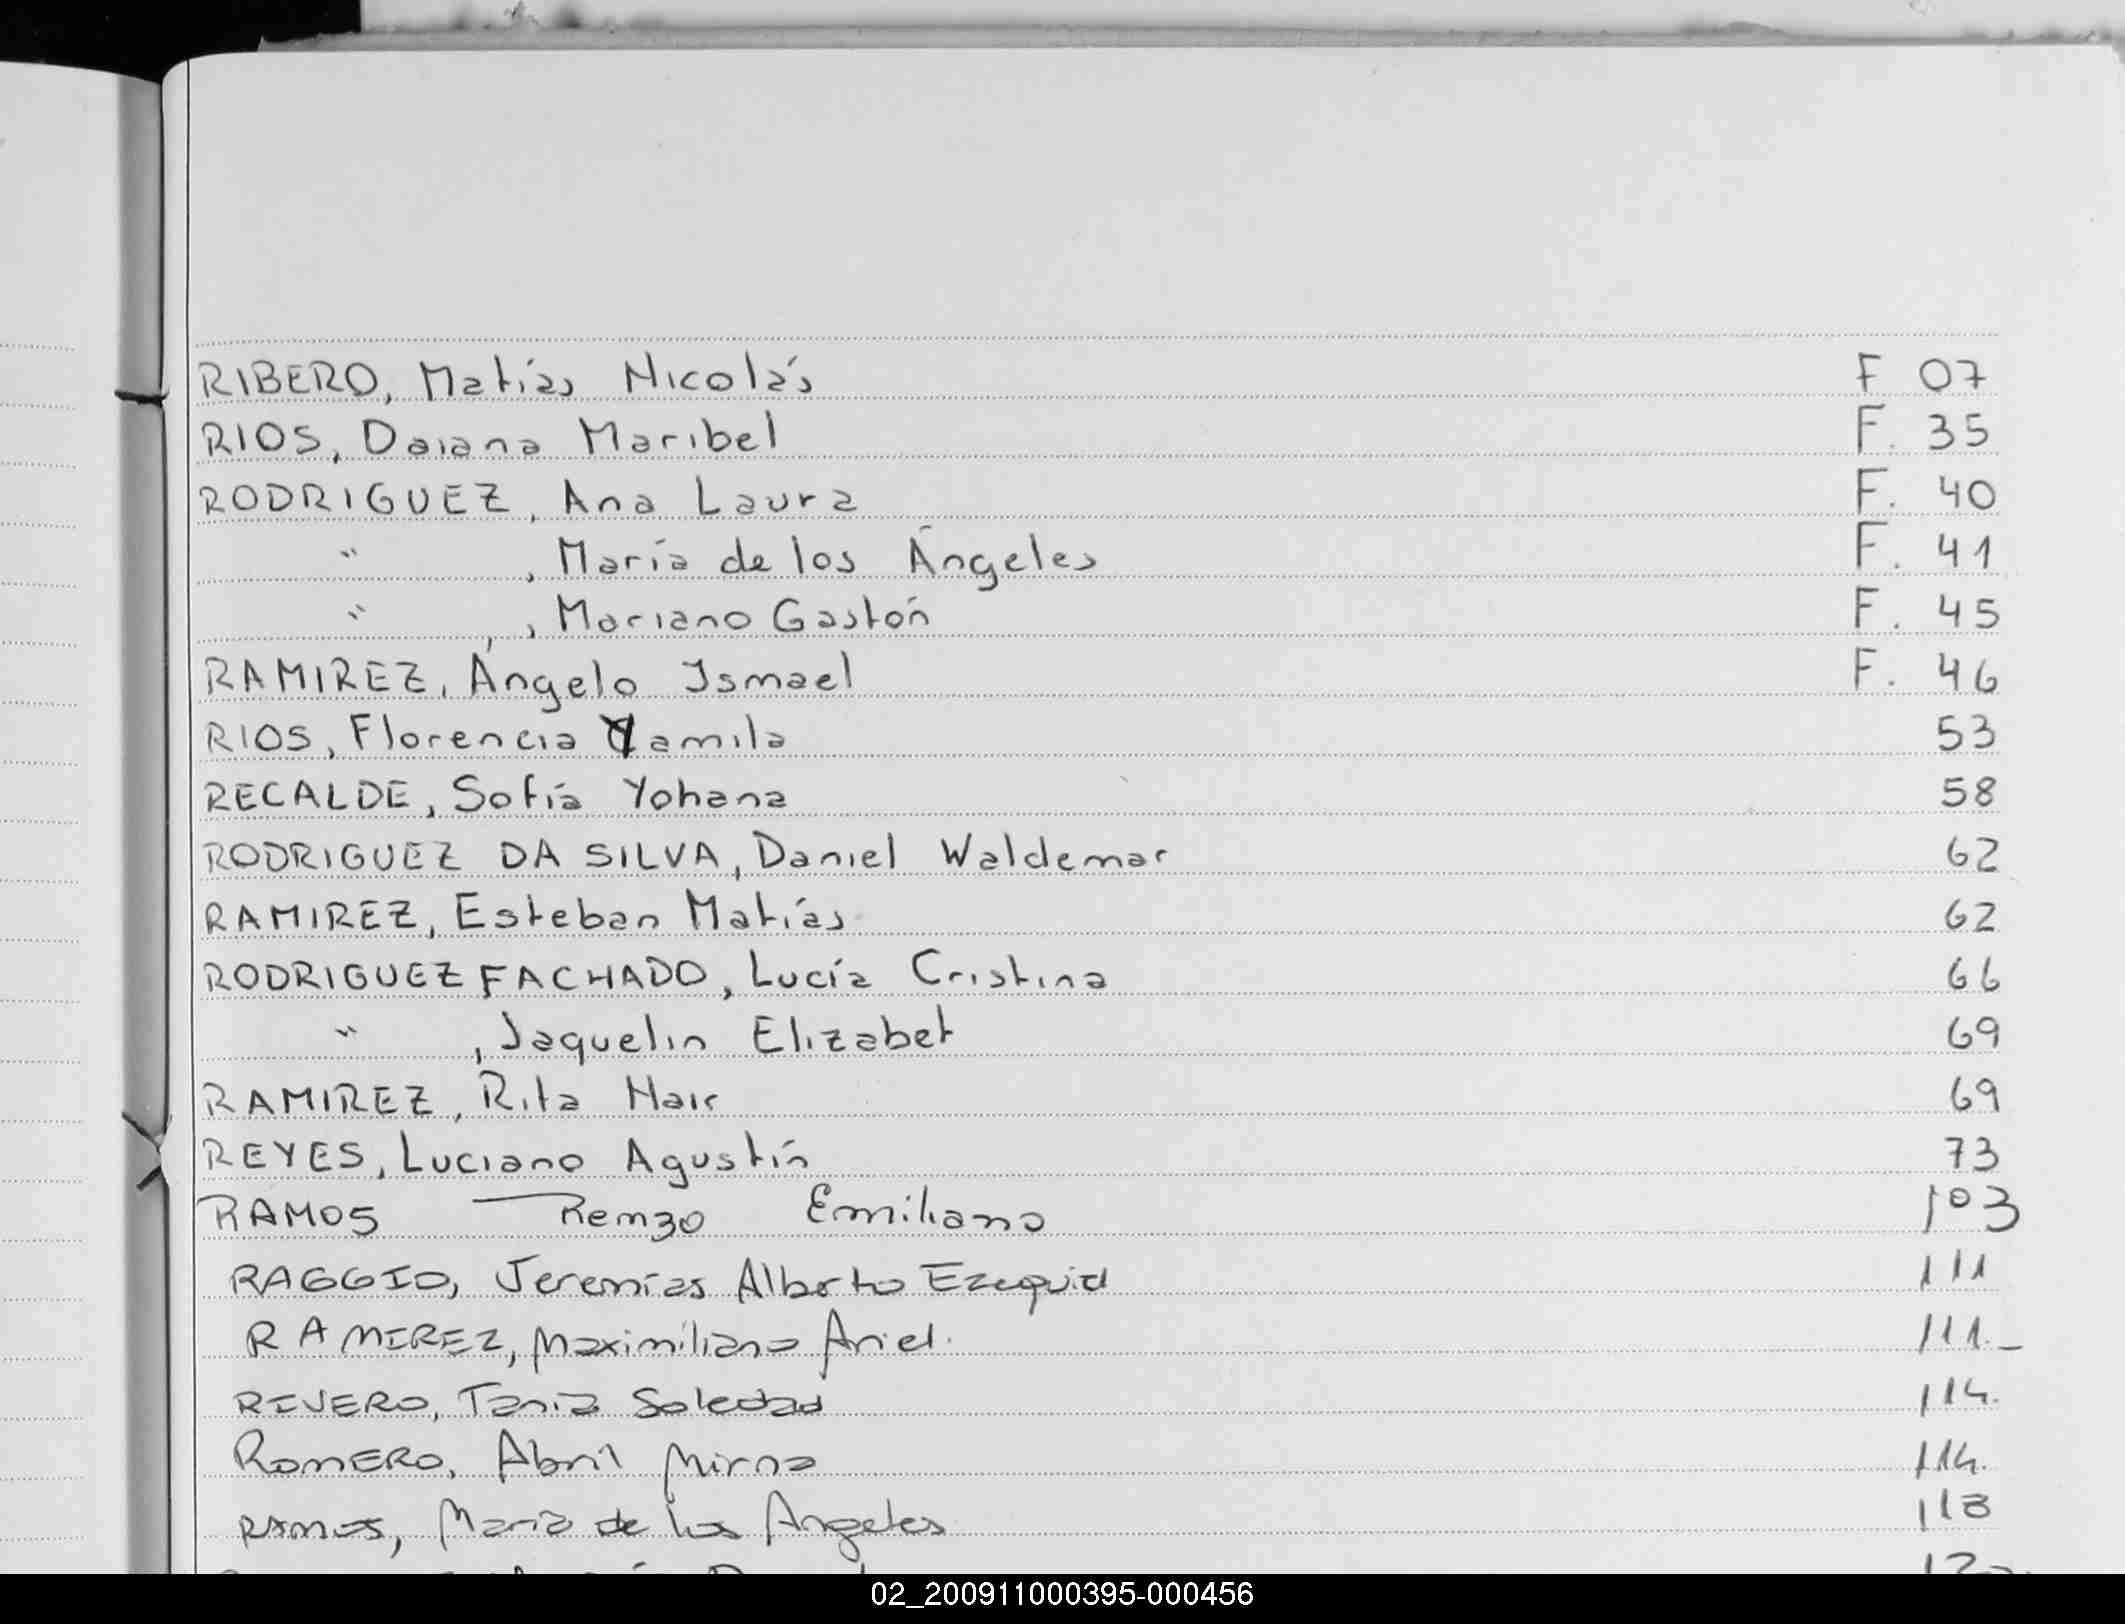 RIBERO, Matías Nicolás F 07
RIOS, Daiana Maribel F. 35
RODRIGUEZ, Ana Laura F. 40
" , María de los Ángeles F. 41
" , Mariano Gastón F. 45
RAMIREZ, Ángelo Ismael F. 46
RIOS, Florencia Yamila 53
RECALDE, Sofía Yohana 58
RODRIGUEZ DA SILVA, Daniel Waldemar 62
RAMIREZ, Esteban Matías 62
RODRIGUEZ FACHADO, Lucía Cristina 66
" , Jaquelin Elizabet 69
RAMIREZ, Rita Nair 69
REYES, Luciano Agustín 73
RAMOS Renzo Emiliano 103
RAGGIO, Jeremías Alberto Ezequiel 111
RAMIREZ, Maximiliano Ariel. 111._
RIVERO, Tania Soledad 114.
ROMERO, Abril Mirna 114.
RAMOS, María de los Angeles 118
02_200911000395-000456